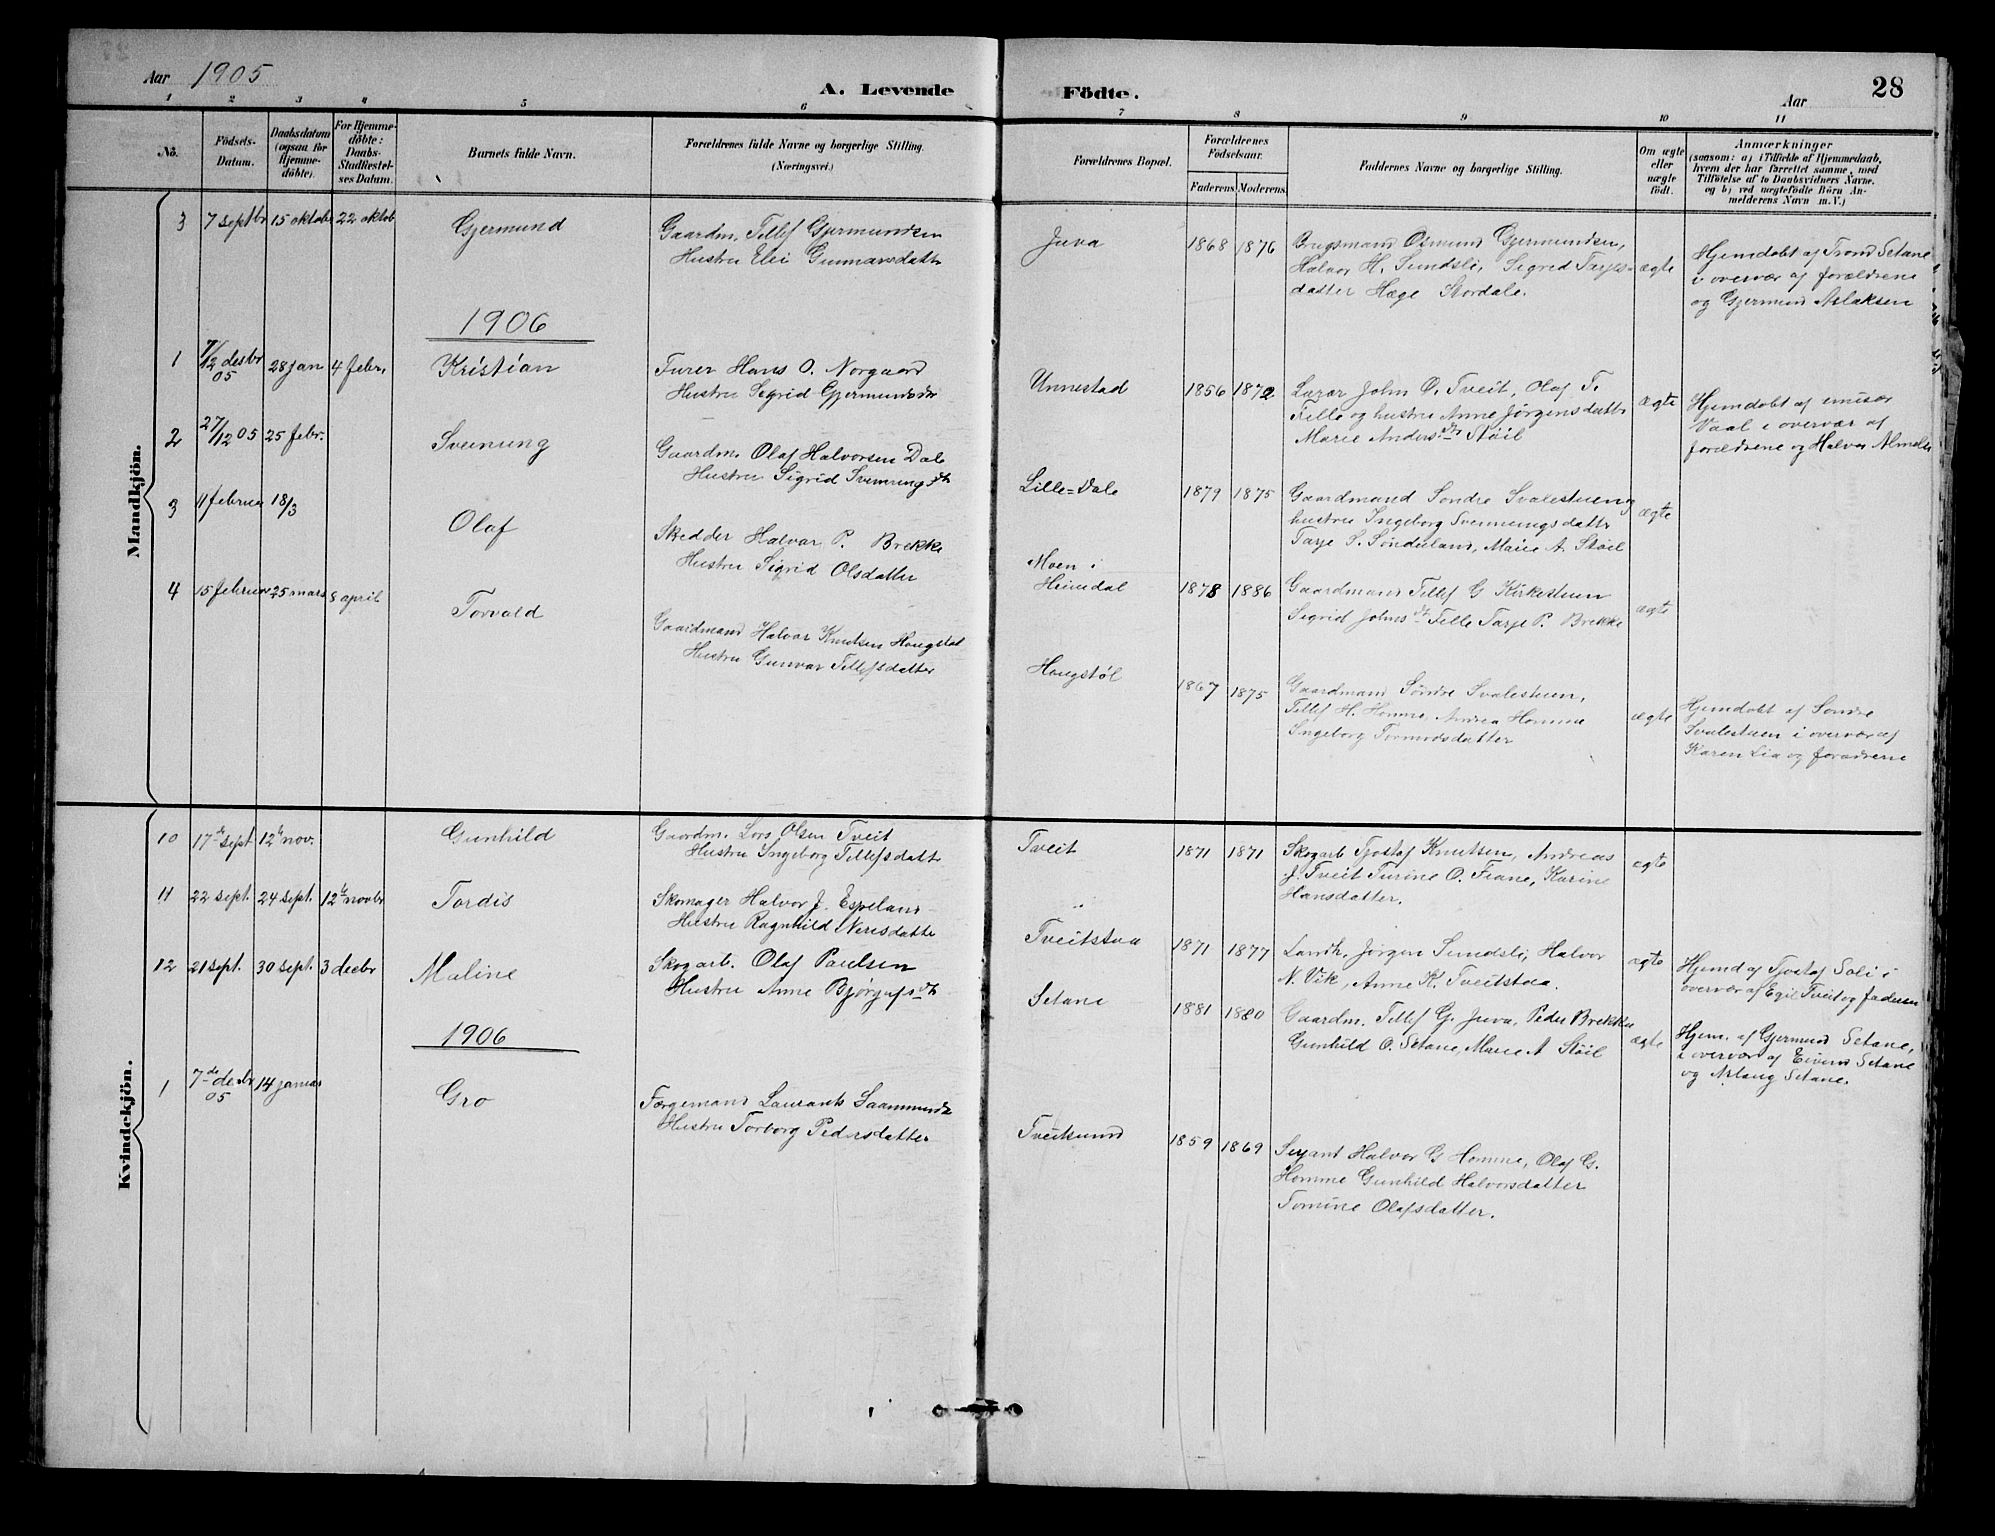 Aar 1905
A. Levende
Födte.
Aar
28
1 2 3 4 5 6 7 8 9 10 11
No.
Födsels-
Datum.
Daabsdatum
(ogsaa for
Hjemme-
döbte).
For Hjemme-
döbte:
Daabs-
Stadfæstel-
ses Datum.
Barnets fulde Navn.
Forældrenes fulde Navne og borgerlige Stilling.
(Næringsvei.)
Forældrenes Bopæl.
Forældrenes
Födselsaar.
Faderens. Moderens.
Faddernes Navne og borgerlige Stilling.
Om ægte
eller
uægte
født.
Anmærkninger
(saasom: a) i Tilfælde af Hjemmedaab,
hvem der har forrettet samme, med
Tilföielse af to Daabsvidners Navne,
og b) ved uægtefödte Börn An-
melderens Navn m. V.)
Mandkjön.
3 7 septbr 15 oktob 22 oktob
Gjermund
Gaardm. Tellef Gjermundsen
Hustru Elei Gunnarsdatt
Juva
1868 1876
Brugsmand Osmund Gjermundsen,
Halvor H. Sundsli, Sigrid Tarjes-
datter Hæge Stordale.
ægte
Hjemdøbt af Trond Setane
i overvær af forældrene
og Gjermund Aslaksen
1906
1 7/12 desbr 05 28 jan 4 febr.
Kristian
Furer Hans O. Norgaard
Hustru Sigrid Gjermundsdtr
Unnestad
1856 1872
Lærer John O. Tveit, Olaf T.
Felle og hustru Anne Jørgensdattr
Marie Andersdtr Støil
ægte
Hjemdøbt af
Vaal i overvær af
forældrene og Halvor
2 27/12 05 25 febr.
Sveinung
Gaardm. Olaf Halvorsen Dale
Hustru Sigrid Svenungdtr
Lille=Dale
1879 1875
Gaardmand Søndre Svalestuen og
hustru Ingeborg Svenningsdattr
Tarje S. Sønderland, Marie A. Støil
ægte
3 11 februar 18/3
Olaf
Skredder Halvar P. Brekke
Hustru Sigrid Olsdatter
Moen i
Heimdal
1878 1886
Gaardmand Tellef G Kirkestuen
Sigrid Johnsdtr Felle Tarje P. Brekke
ægte
4 15 februar 25 mars 8 april
Torvald
Gaardmand Halvar Knutsen Hougstøl
Hustru Gunvar Tellefsdatter
Hougstøl
1867 1875
Gaardmand Søndre Svalestuen,
Tellef H. Homme, Andrea Homme
Ingeborg Tormodsdatter
ægte
Hjemdøbt af Søndre
Svalestuen i overvær af
Karen Lia og forældrene
Kvindekjön.
10 17de sept 12te nov.
Gunhild
Gaardm. Lars Olsen Tveit
Hustru Ingeborg Tellefsdatt
Tveit
1871 1871
Skogarb Tjostaf Knutsen, Andreas
J. Tveit Turine O. Fiane, Karine
Hansdatter.
ægte
11 22 sept. 24 sept. 12te novbr
Tordis
Skomager Halvor J. Espeland
Hustru Ragnhild Nerisdatte
Tveitstaa
1871 1877
Landh. Jørgen Sundsli, Halvor
N. Vik, Anne K. Tveitstaa.
ægte
Hjemd af Tjostaf Soli i
overvær af Egil Tveit og faderen
12 21 sept. 30 sept. 3 decbr
Maline
Skogarb. Olaf Paulsen
Hustru Anne Bjørgufsdtr
Setane
1881 1880
Gaardm. Tellef G. Juva, Peder Brekke
Gunhild O. Setane, Marie A Støil
ægte
Hjem. af Gjermund Setane,
i overvær af Eivind Setane
og Aslaug Setane.
1906
1 7de decbr 05 14 januar
Gro
Færgemand Laurants Saamundsen
Hustru Torborg Pedersdatter
Tveitsund
1859 1869
Serjant Halvor G Homme, Olaf G.
Homme Gunhild Halvorsdatter
Tomine Olafsdatter.